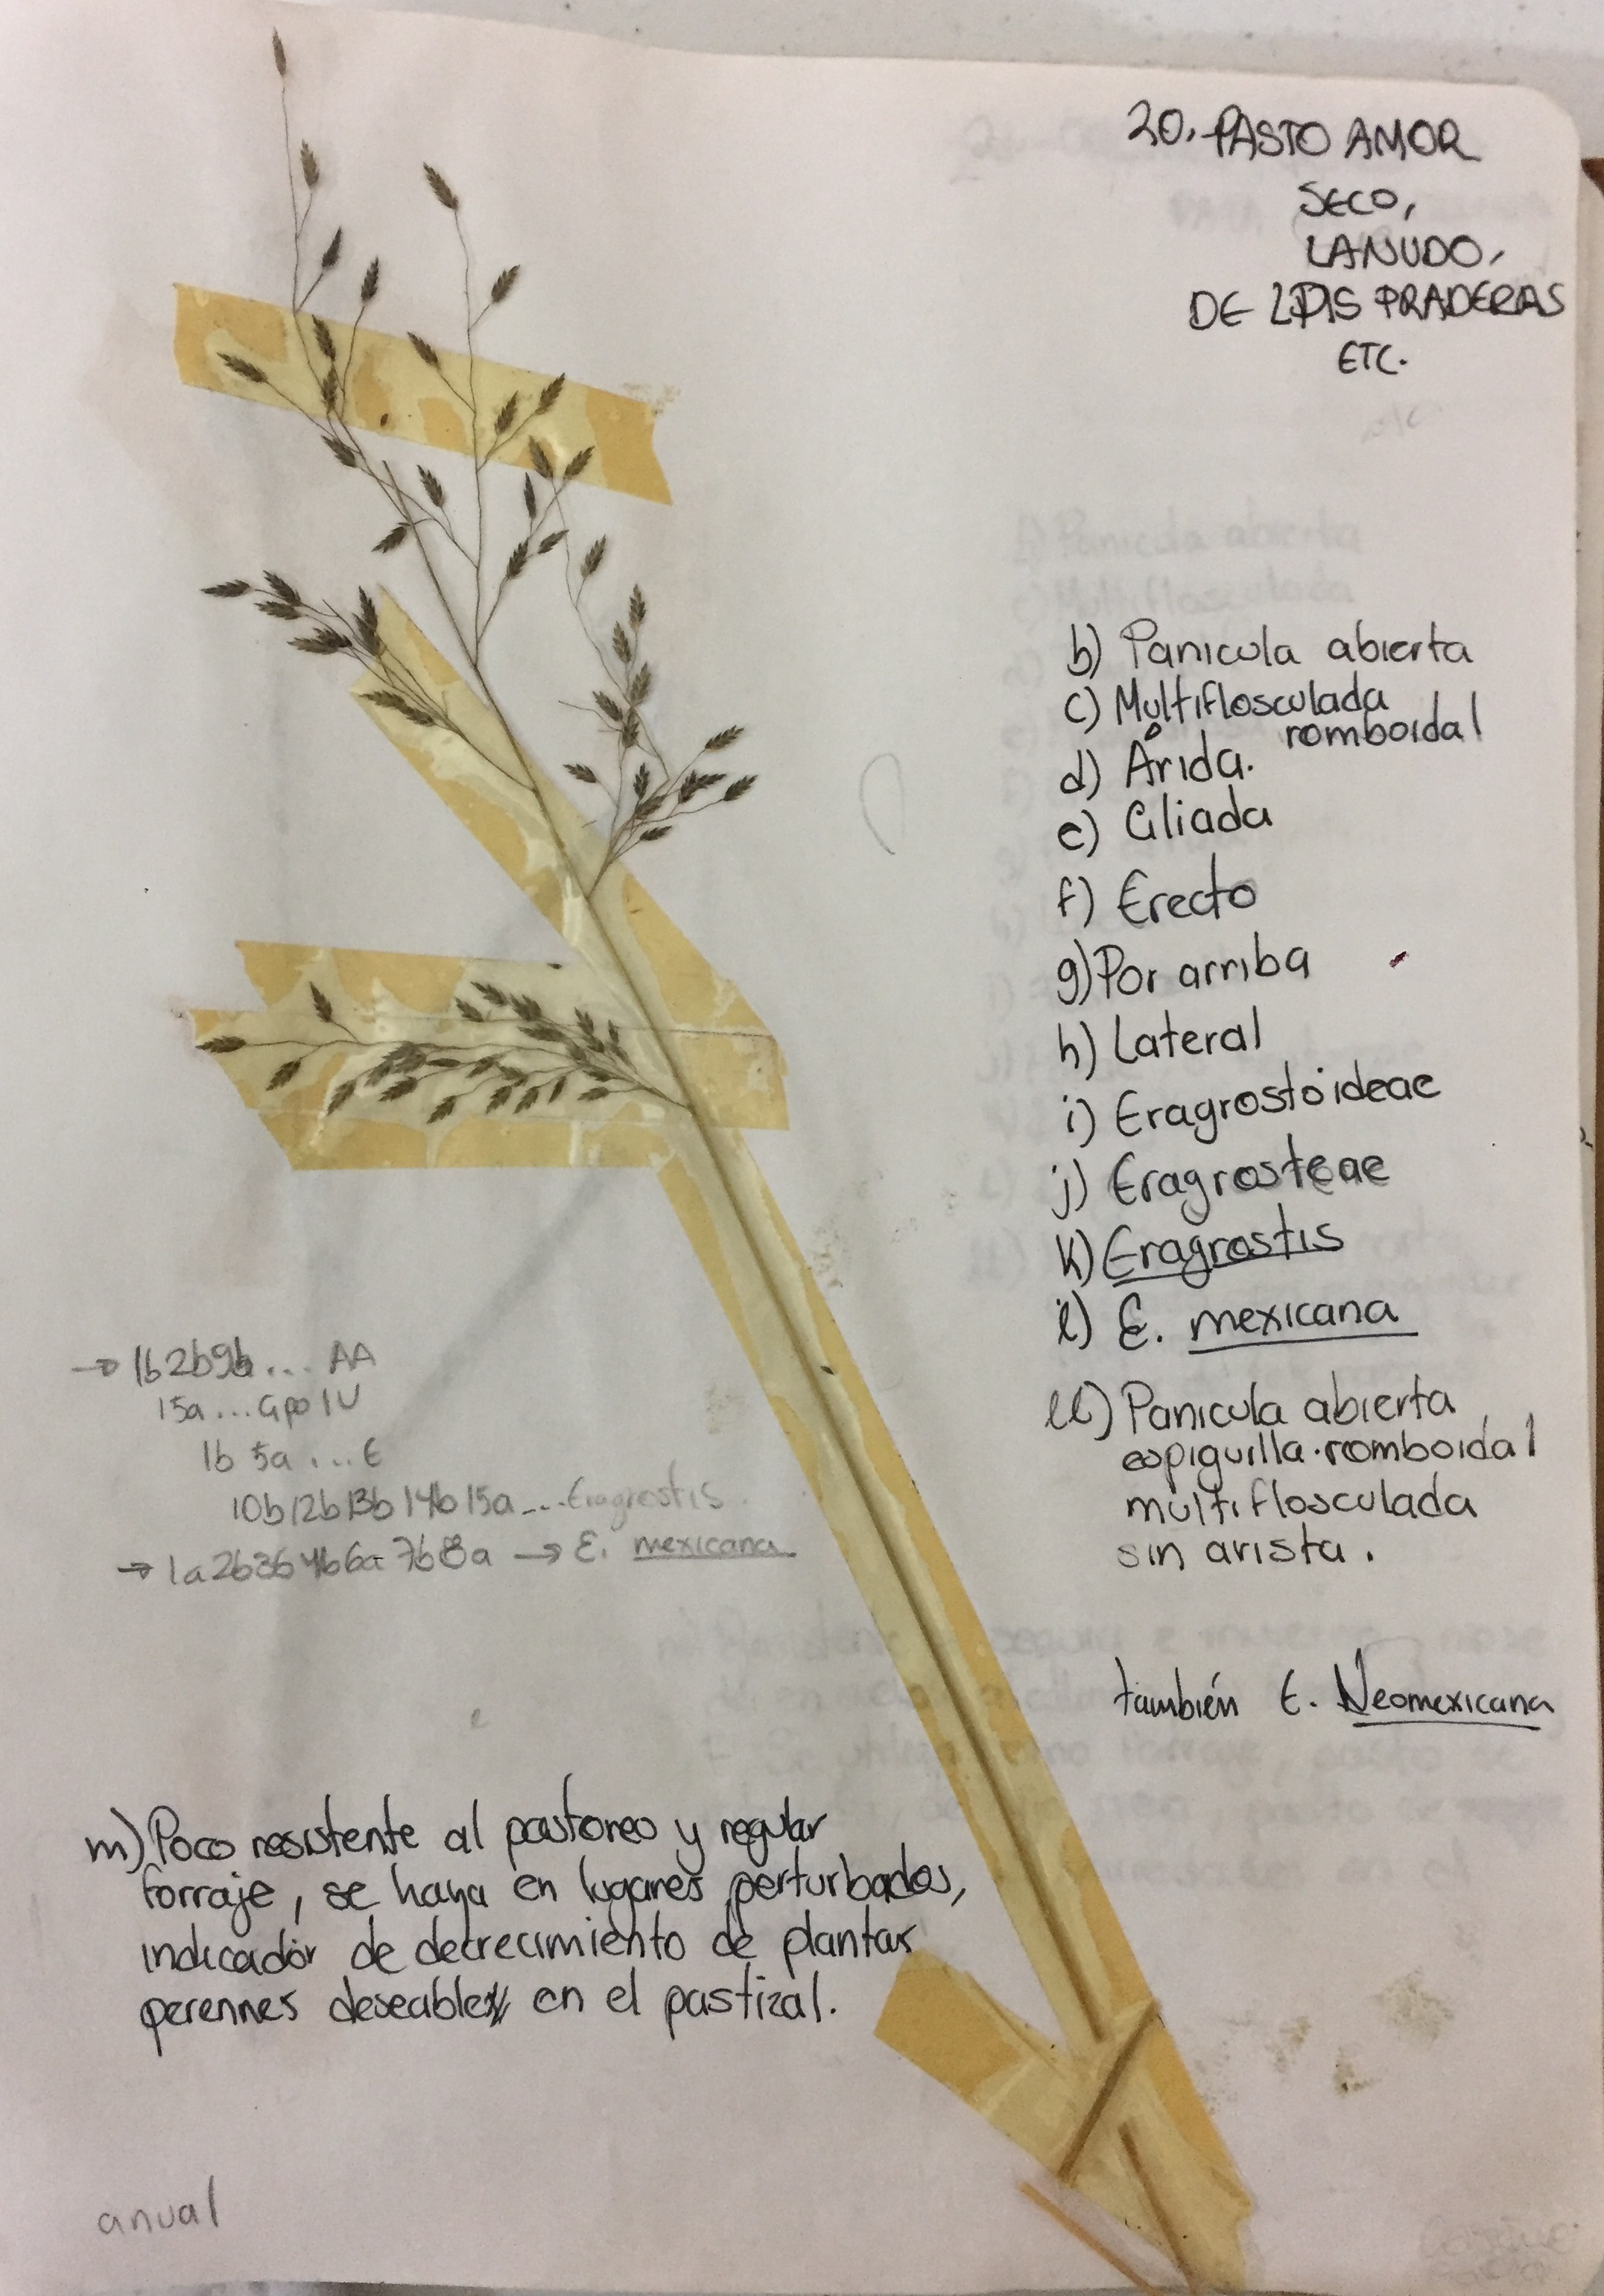 20. PASTO AMOR
SECO,
LANUDO,
DE LAS PRADERAS
ETC.
b) Panicula abierta
c) Multiflosculada
romboidal
d) Árida.
e) Ciliada
f) Erecto
g) Por arriba
h) Lateral
i) Eragrostoideae
j) Eragrosteae
k) Eragrostis
l) E. mexicana
ll) Panicula abierta
espiguilla romboidal
multiflosculada
sin arista.
también E. Neomexicana
→ 1b 2b 9b... AA
15a... Gpo IV
1b 5a ... E
10b 12b 13b 14b 15a ... Eragrostis
→ 1a 2b 3b 4b 6a 7b 8a → E. mexicana
m) Poco resistente al pastoreo y regular
forraje, se haya en lugares perturbados,
indicador de decrecimiento de plantas
perennes deseables en el pastizal.
anual